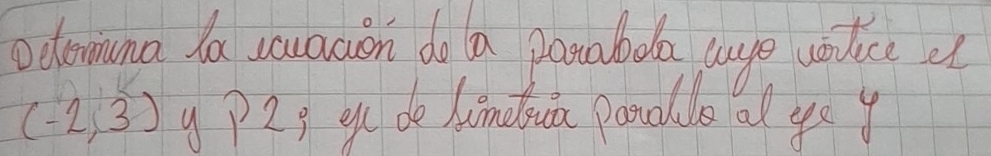 Determina la ecuación de la parabola cuyo vértice el
(-2,3) y P2; eje de simetria paralelo al eje y